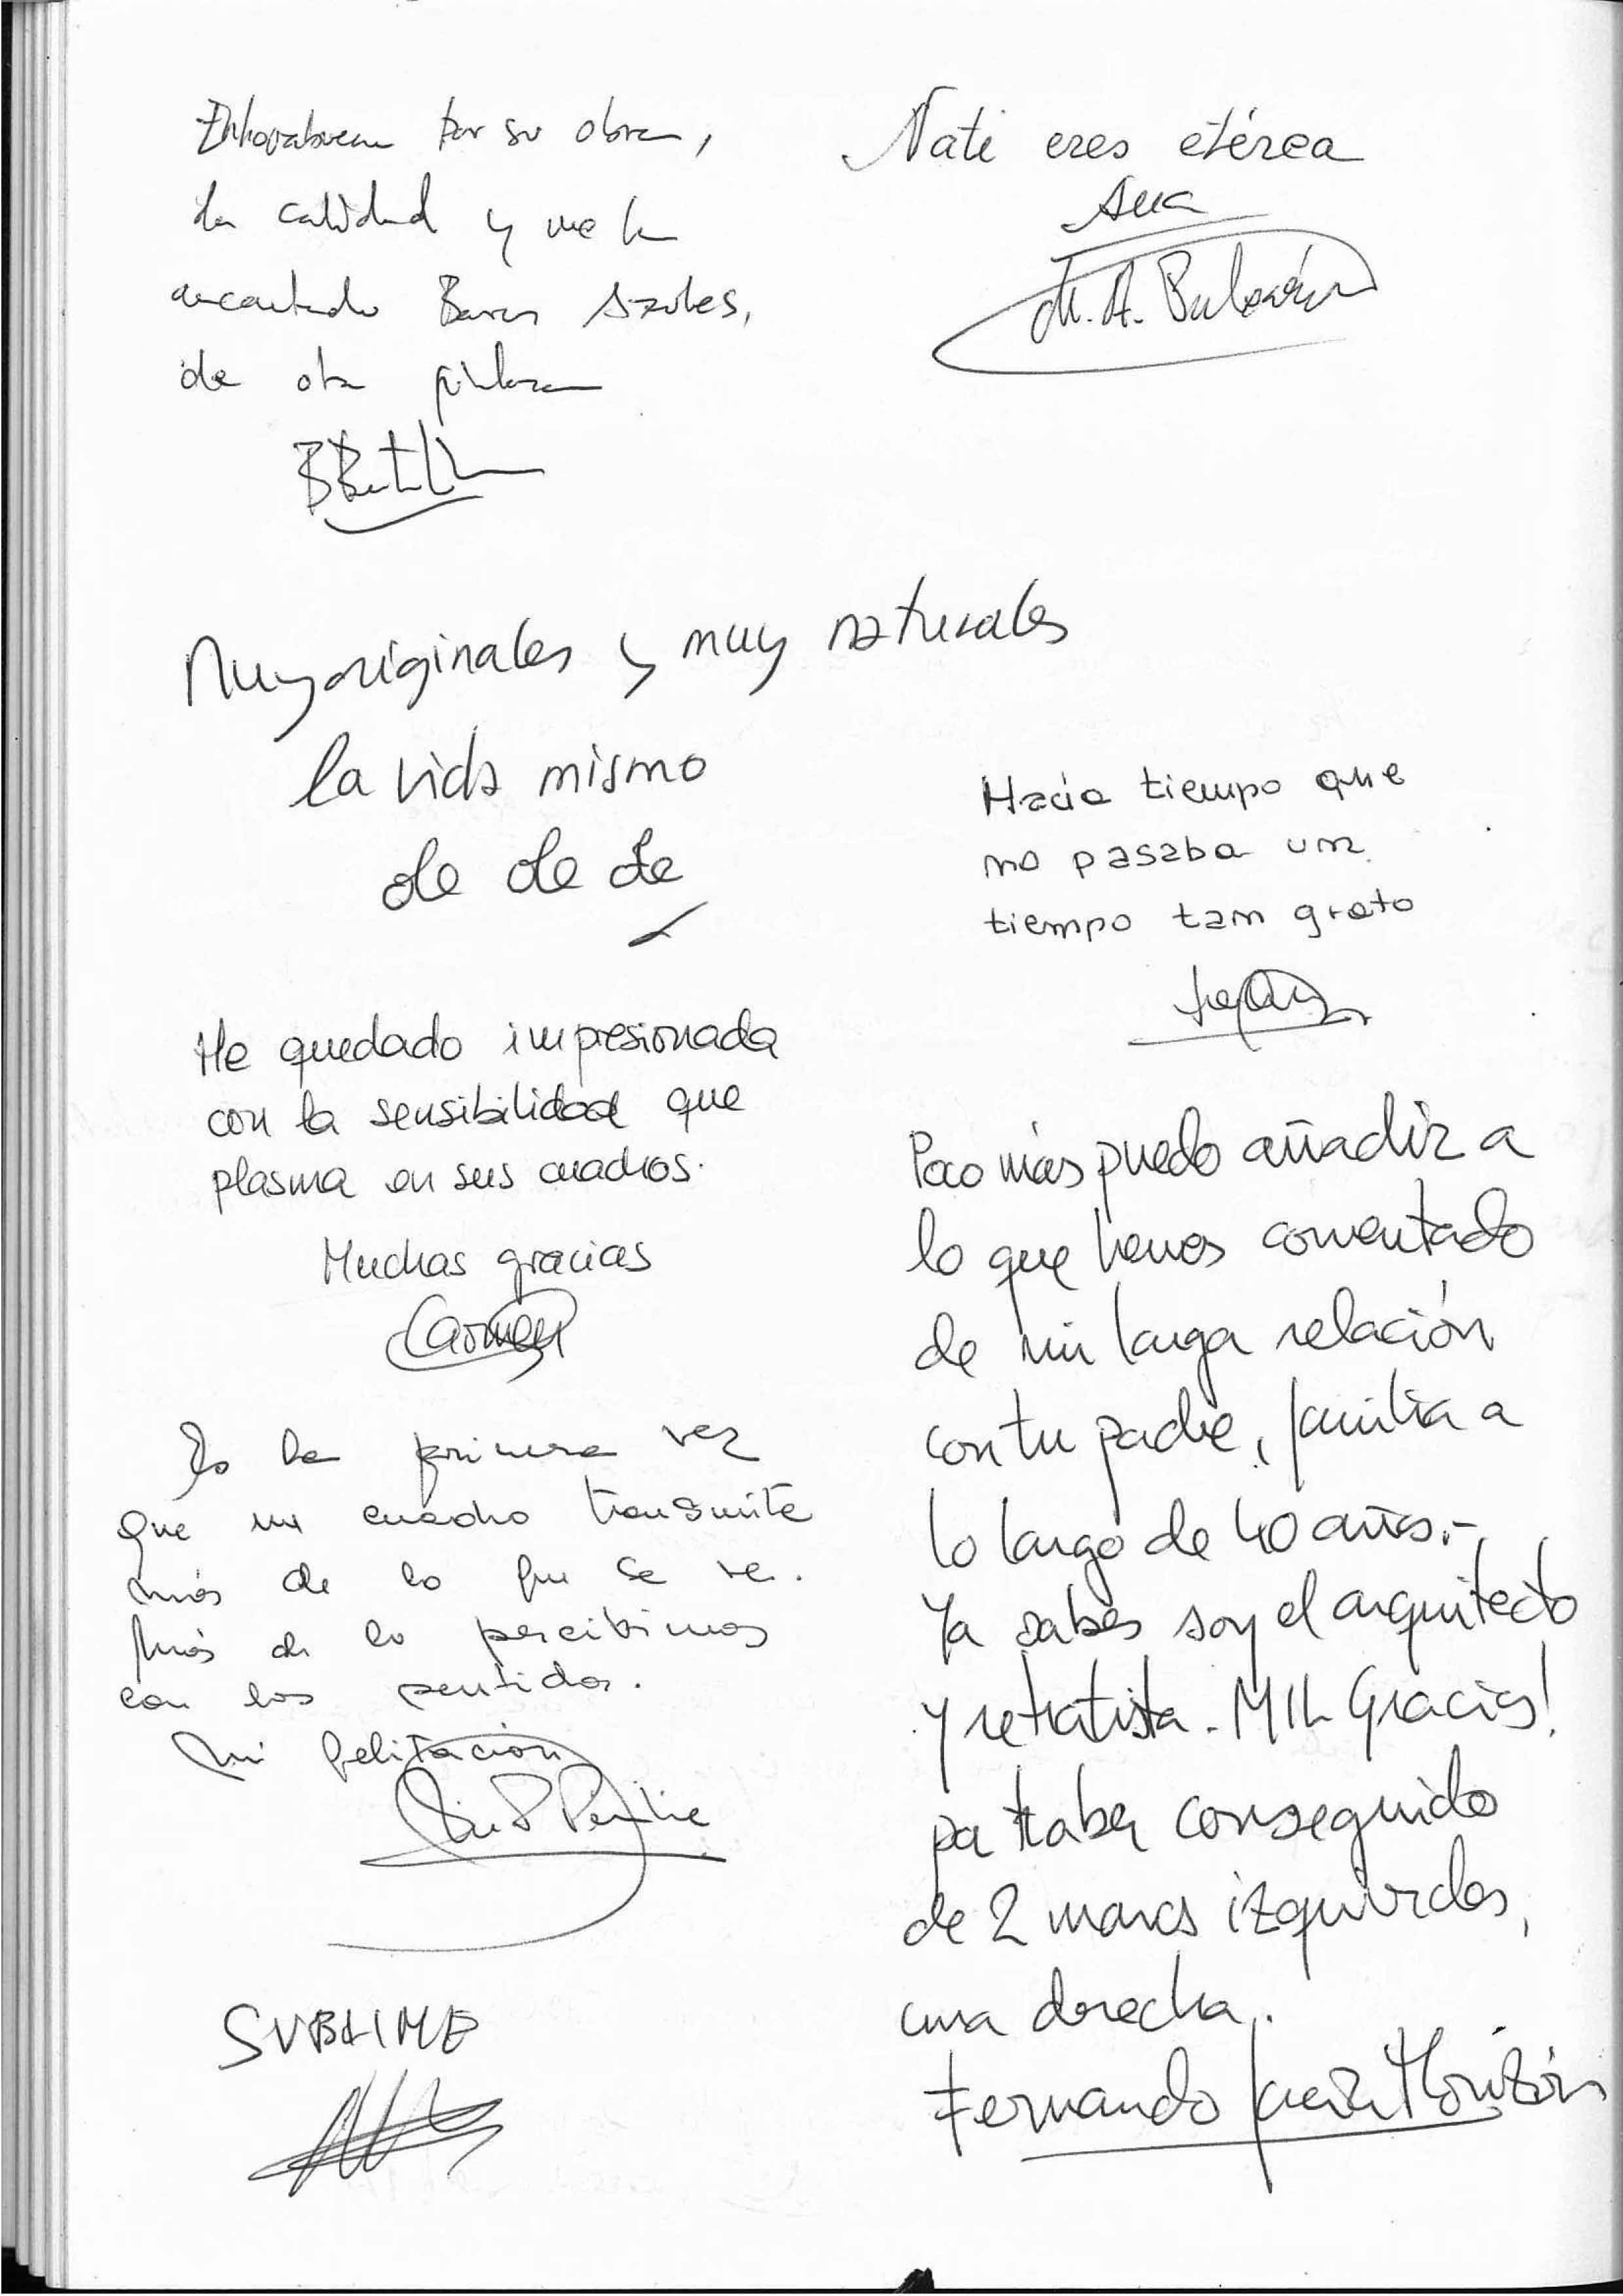 Enhorabuena por su obra,
la calidad y me ha
encantado Barcas Azules,
de otra pintora
Nati eres etérea
Ana
M. A.
Muy originales y muy naturales
la vida mismo
ole ole ole
Hacia tiempo que
no pasaba un
tiempo tan grato
He quedado impresionada
con la sensibilidad que
plasma en sus cuadros.
Muchas gracias
Carmen
Es la primera vez
que un cuadro transmite
más de lo que se ve.
Más de lo percibimos
con los sentidos.
Mi felitación
SUBLIME
Poco más puedo añadir a
lo que hemos comentado
de mi larga relación
con tu padre, familia a
lo largo de 40 años.-
Ya sabes soy el arquitecto
y retratista - MIL Gracias!
por haber conseguido
de 2 manos izquierdas,
una derecha.
Fernando